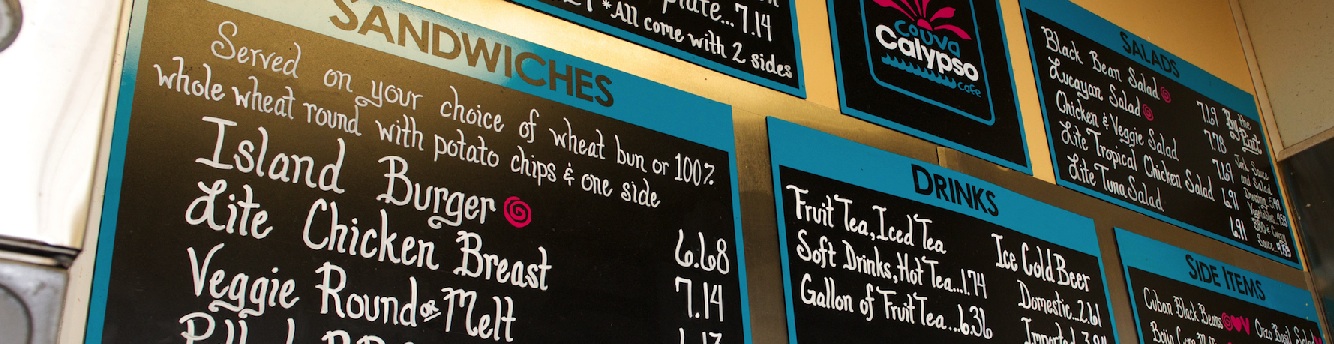 SANDWICHES
Served on your choice of wheat bun or 100%
whole wheat round with potato chips & one side
Island Burger 6.68
Lite Chicken Breast 7.14
Veggie Round or Melt
plate...7.14
*All come with 2 sides
Couva
Calypso
cafe
DRINKS
Fruit Tea, Iced Tea
Soft Drinks, Hot Tea...1.74
Gallon of Fruit Tea...6.36
Ice Cold Beer
Domestic..2.61
Imported
SALADS
Black Bean Salad
Lucayan Salad
Chicken & Veggie Salad
Lite Tropical Chicken Salad
Lite Tuna Salad
SIDE ITEMS
Cuban Black Beans